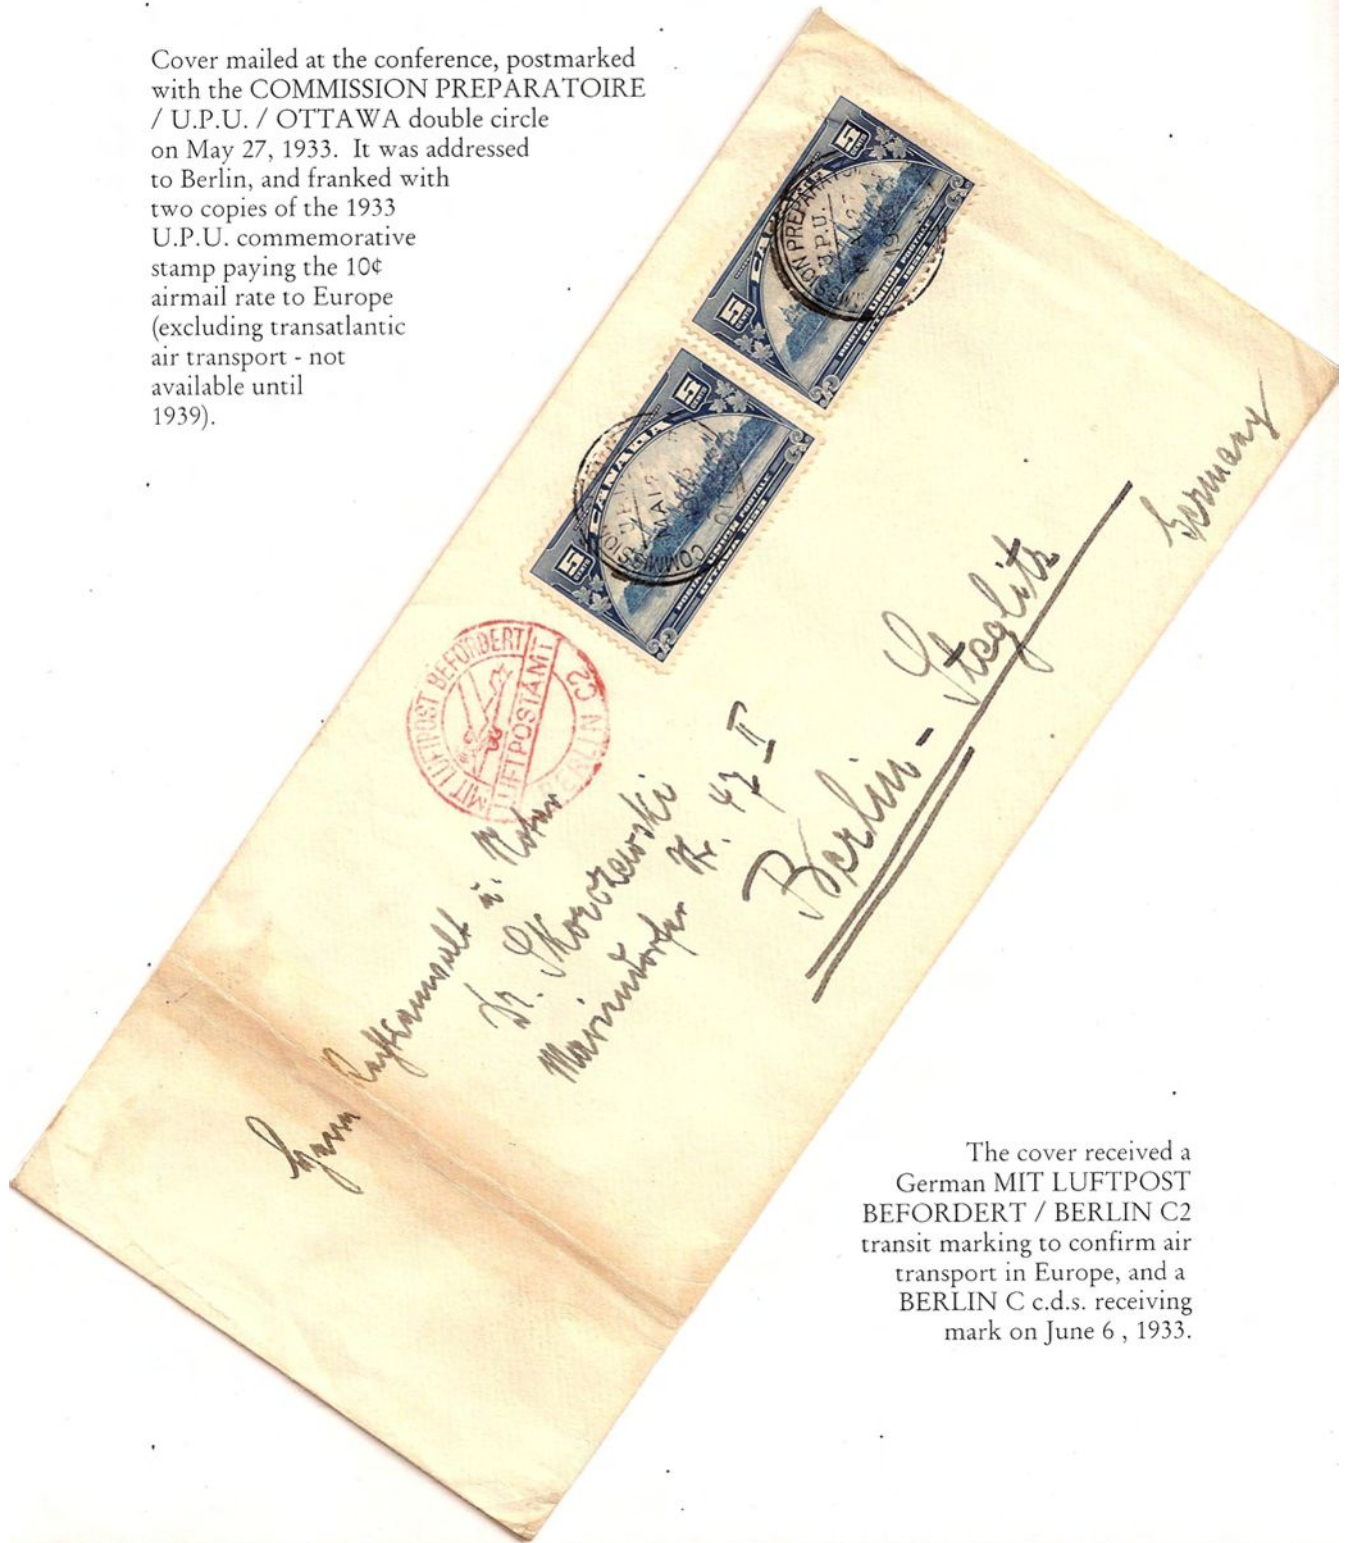 Cover mailed at the conference, postmarked
with the COMMISSION PREPARATOIRE
/ U.P.U. / OTTAWA double circle
on May 27, 1933. It was addressed
to Berlin, and franked with
two copies of the 1933
U.P.U. commemorative
stamp paying the 10¢
airmail rate to Europe
(excluding transatlantic
air transport - not
available until
1939).
5 CENTS CANADA 5 CENTS
POSTAL UNION POSTALE
OTTAWA 1933
5 CENTS CANADA 5 CENTS
POSTAL UNION POSTALE
OTTAWA 1933
MIT LUFTPOST BEFÖRDERT
LUFTPOSTAMT
BERLIN C2
Herrn Rechtsanwalt u. Notar
Dr. Skorczewski
Mariendorfer Str. 47 II
Berlin-Steglitz
Germany
The cover received a
German MIT LUFTPOST
BEFORDERT / BERLIN C2
transit marking to confirm air
transport in Europe, and a
BERLIN C c.d.s. receiving
mark on June 6 , 1933.